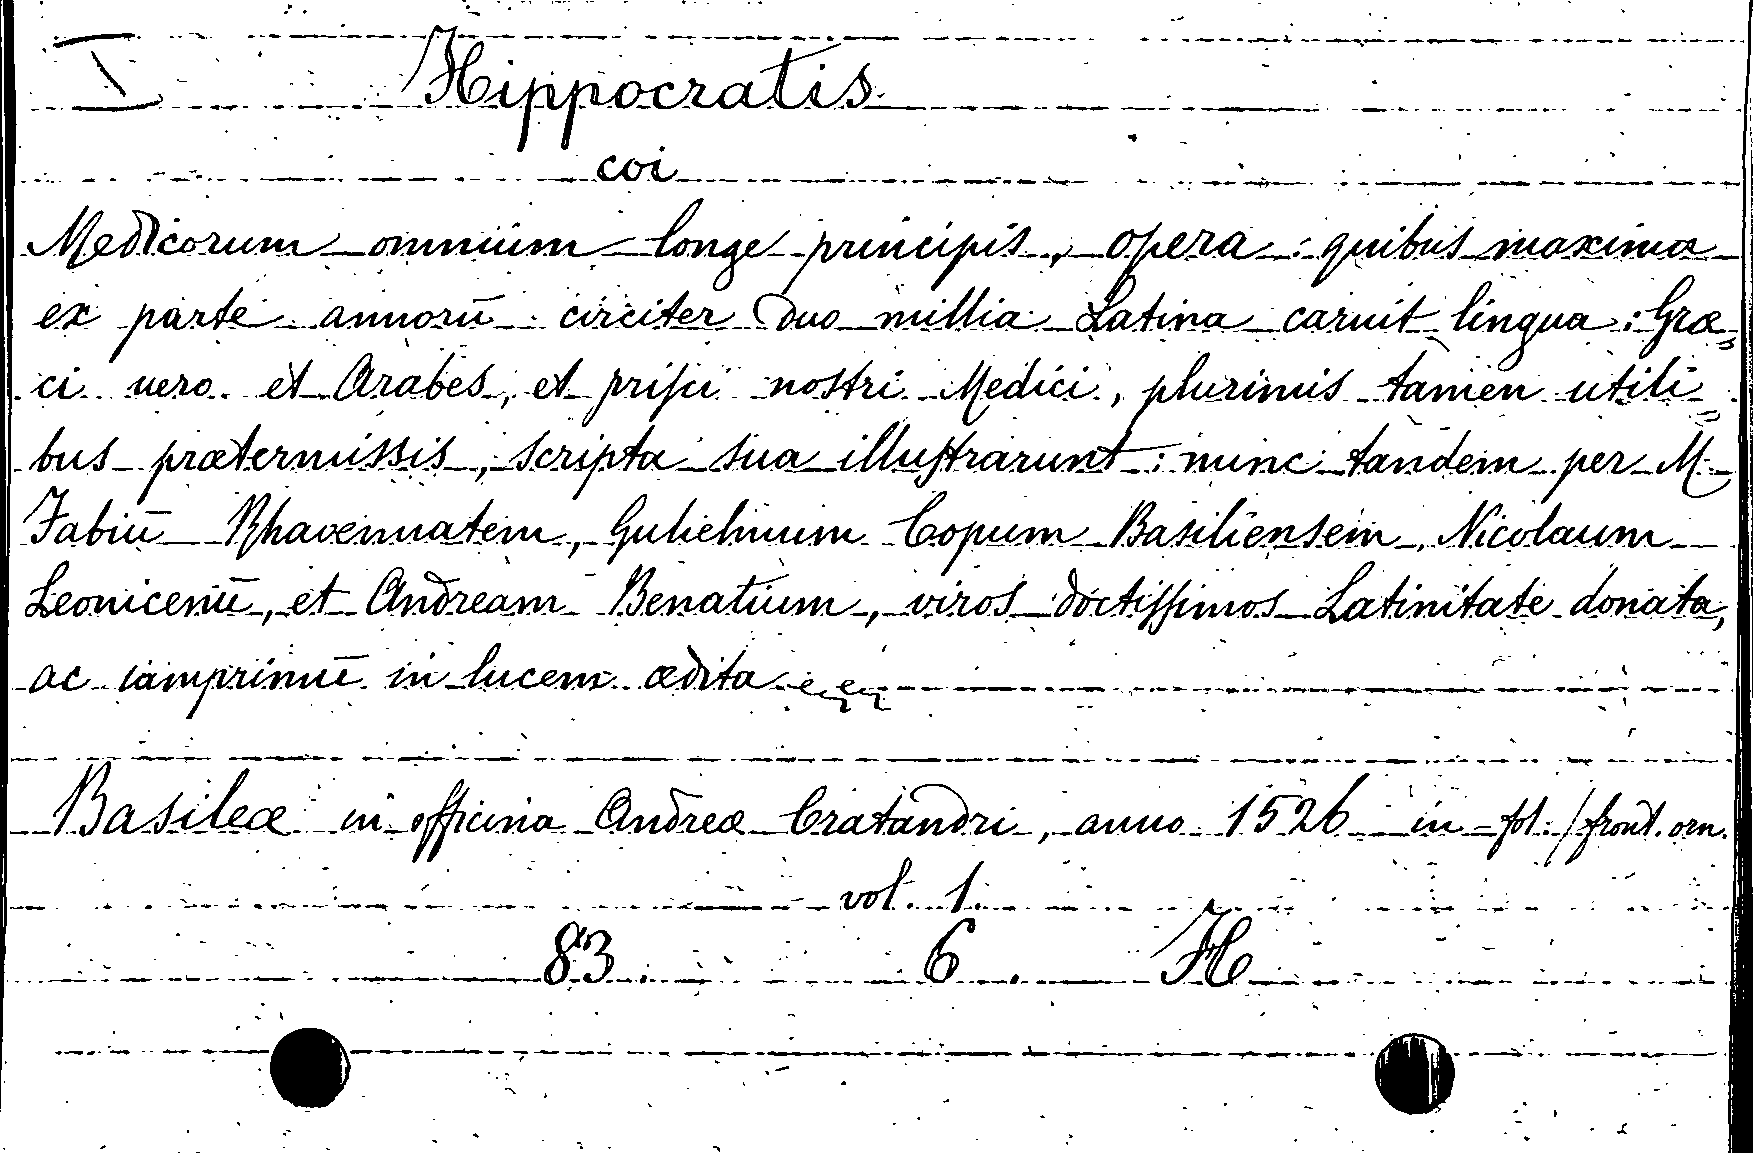 I Hippocratis.
coi
Medicorum omnium longe principis, opera: quibus maxima
ex parte annorū circiter duo millia Latina caruit lingua: Græ=
ci uero et Arabes, et prisci nostri Medici, plurimis tamen utili=
bus prætermissis, scripta sua illustrarunt: nunc tandem per M.
Fabiū Rhavennatem, Gulielmum Copum Basiliensem, Nicolaum
Leonicenū, et Andream Benatium, viros doctissimos Latinitate donata,
ac iamprimū in lucem ædita
Basileæ in officina Andreæ Cratandri, anno 1526 in-fol. / front. orn.
vol. 1.
83. 6. H